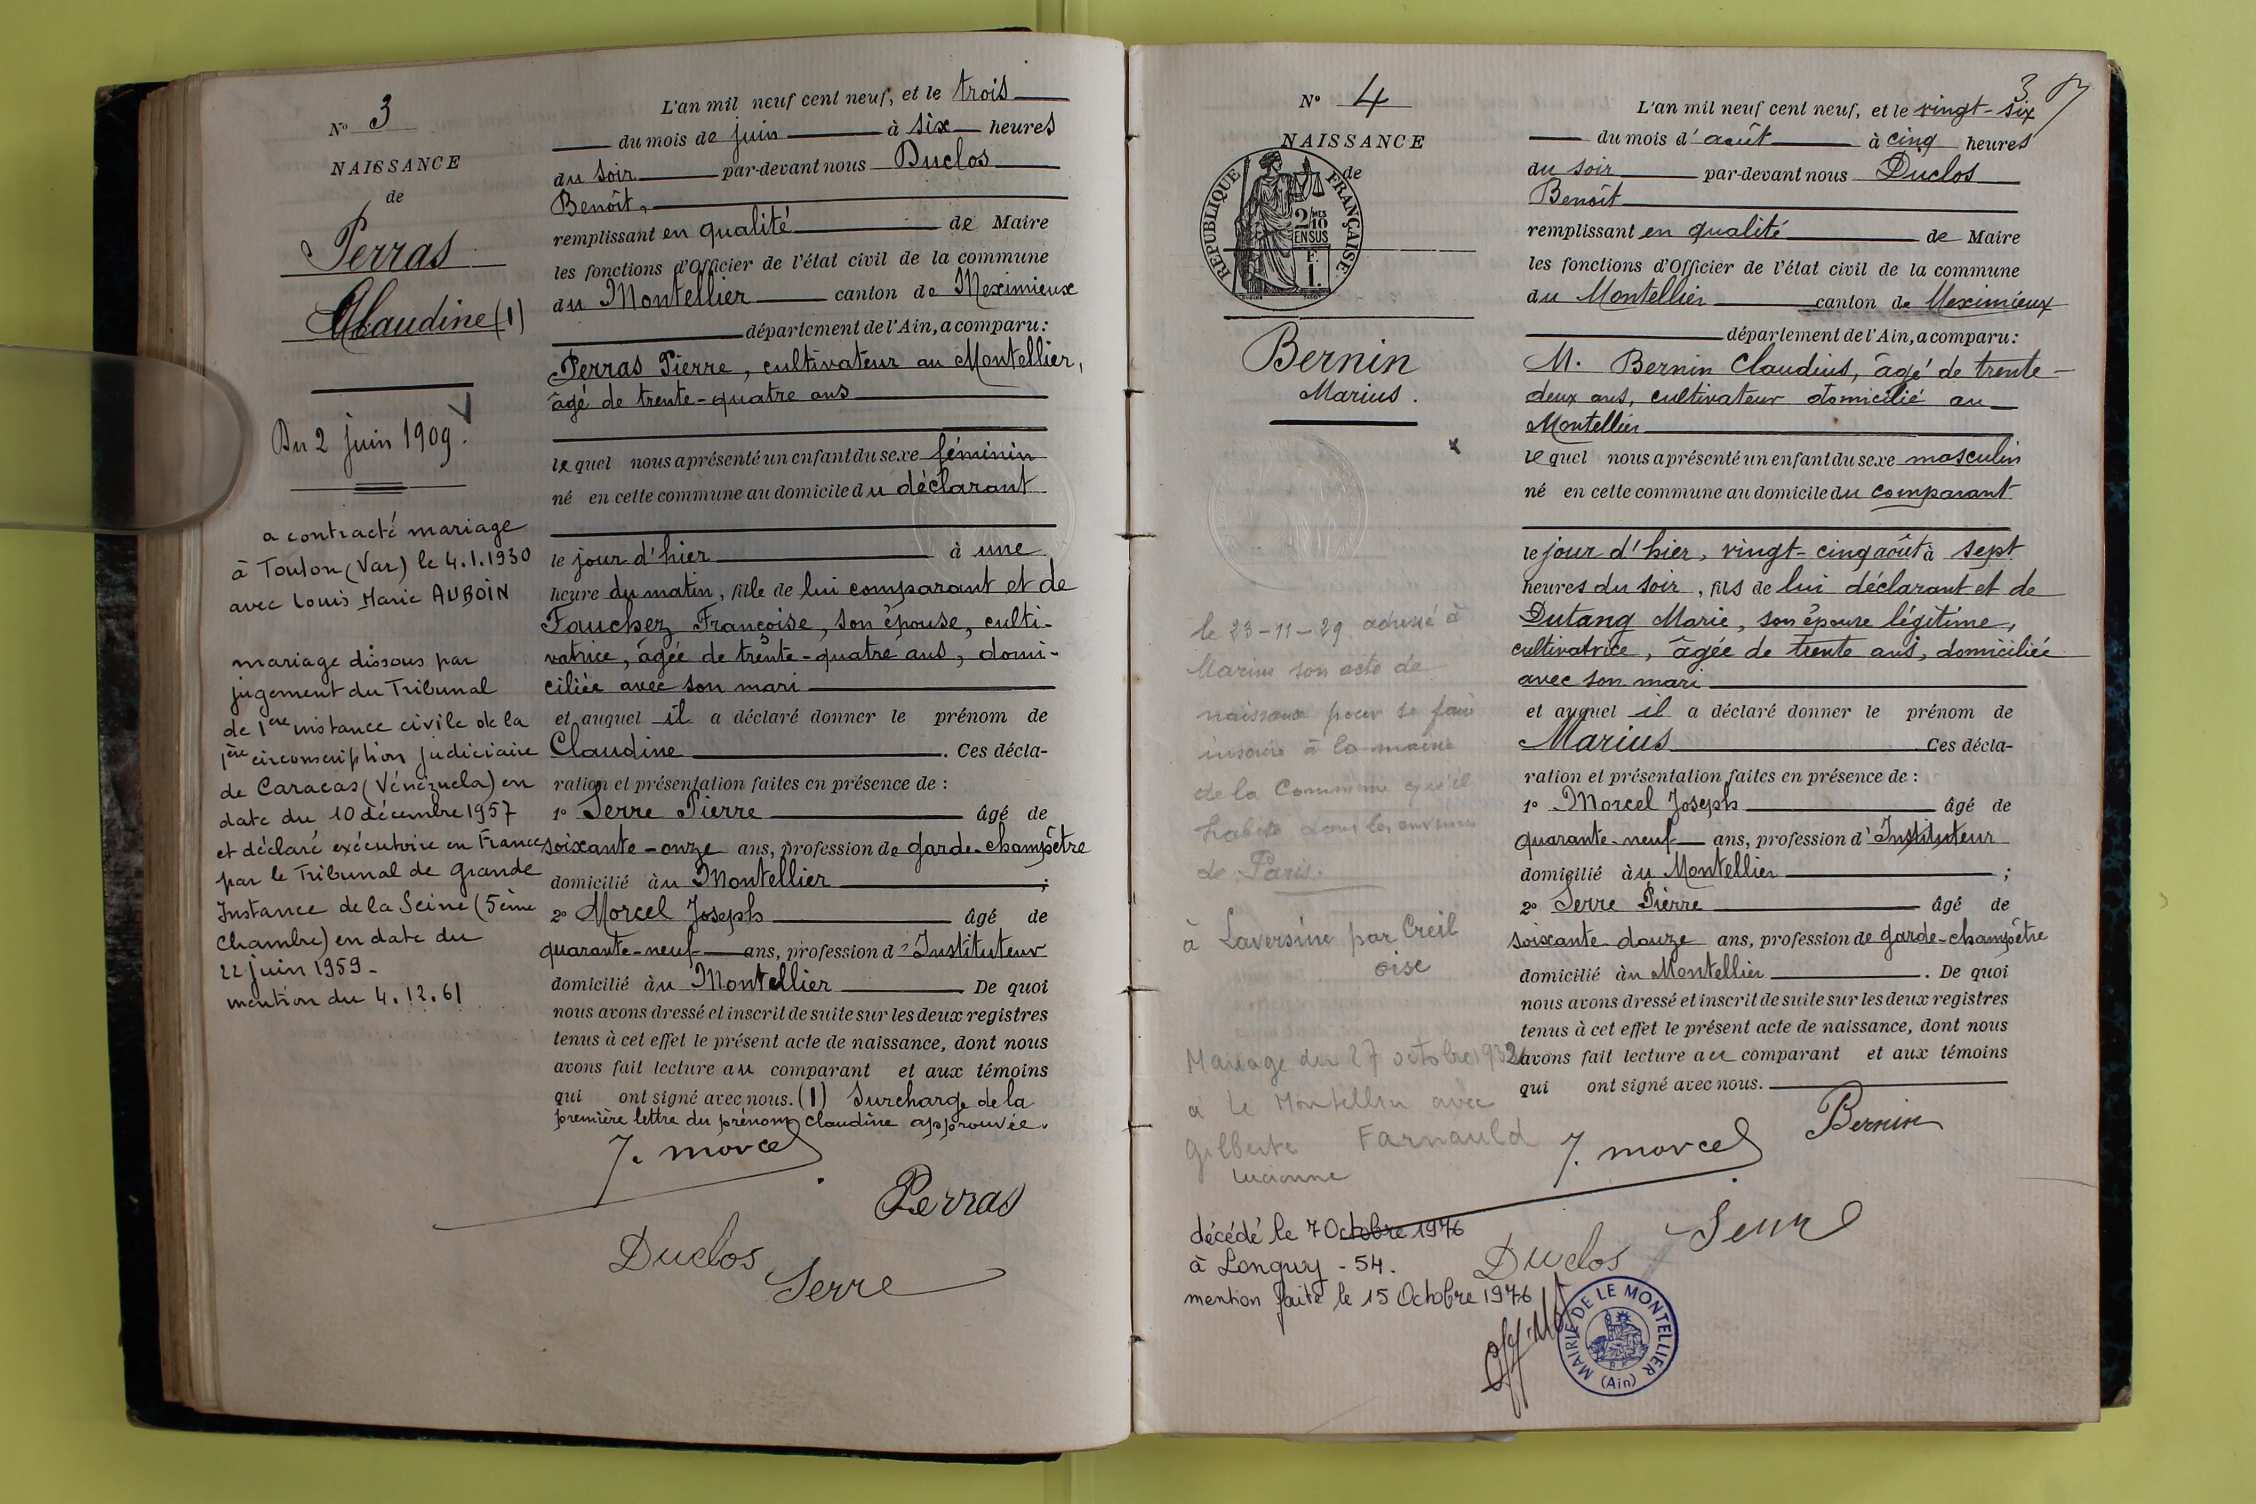 N° 3
NAISSANCE
de
Perras
Claudine (1)
Du 2 juin 1909.
a contracté mariage
à Toulon (Var) le 4.1.1930
avec Louis Marie AUBOIN
mariage dissous par
jugement du Tribunal
de 1ere instance civile de la
1ère circonscription judiciaire
de Caracas (Vénézuela) en
date du 10 décembre 1957
et déclaré exécutoire en France
par le Tribunal de Grande
Instance de la Seine (5ème
Chambre) en date du
22 juin 1959 -
mention du 4.12.61
L'an mil neuf cent neuf, et le trois
du mois de juin à six heures
du soir par-devant nous Duclos
Benoît,
remplissant en qualité de Maire
les fonctions d'Officier de l'état civil de la commune
du Montellier canton de Meximieux
département de l'Ain, a comparu :
Perras Pierre, cultivateur au Montellier,
âgé de trente-quatre ans
lequel nous a présenté un enfant du sexe féminin
né en cette commune au domicile du déclarant
le jour d'hier à une
heure du matin, fille de lui comparant et de
Fouchez Françoise, son épouse, culti-
vatrice, âgée de trente-quatre ans, domi-
ciliée avec son mari
et auquel il a déclaré donner le prénom de
Claudine . Ces décla-
ration et présentation faites en présence de :
1° Serre Pierre âgé de
soixante-onze ans, profession de garde-champêtre
domicilié au Montellier ;
2° Morcel Joseph âgé de
quarante-neuf ans, profession d'Instituteur
domicilié au Montellier De quoi
nous avons dressé et inscrit de suite sur les deux registres
tenus à cet effet le présent acte de naissance, dont nous
avons fait lecture au comparant et aux témoins
qui ont signé avec nous. (1) Surcharge de la
première lettre du prénom Claudine approuvée.
J. Morcel
Perras
Duclos
Serre
3
N° 4
NAISSANCE
de
RÉPUBLIQUE FRANÇAISE
2/10 MES
EN SUS
F.
1.
Bernin
Marius.
le 23-11-29 adressé à
Marius son acte de
naissance pour se faire
inscrire à la mairie
de la Commune qu'il
habite dans les environs
de Paris.
à Laversine par Creil
oise
Mariage du 27 octobre 1932
à Le Montellier avec
Gilberte Farnauld
Lucienne
décédé le 7 Octobre 1976
à Longwy - 54.
mention faite le 15 Octobre 1976
L'an mil neuf cent neuf, et le vingt-six
du mois d'août à cinq heures
du soir par-devant nous Duclos
Benoît
remplissant en qualité de Maire
les fonctions d'Officier de l'état civil de la commune
du Montellier canton de Meximieux
département de l'Ain, a comparu :
M. Bernin Claudius, âgé de trente-
deux ans, cultivateur domicilié au
Montellier
lequel nous a présenté un enfant du sexe masculin
né en cette commune au domicile du comparant
le jour d'hier, vingt-cinq août à sept
heures du soir, fils de lui déclarant et de
Dutang Marie, son épouse légitime,
cultivatrice, âgée de trente ans, domiciliée
avec son mari
et auquel il a déclaré donner le prénom de
Marius Ces décla-
ration et présentation faites en présence de :
1° Morcel Joseph âgé de
quarante-neuf ans, profession d'Instituteur
domicilié au Montellier ;
2° Serre Pierre âgé de
soixante douze ans, profession de garde-champêtre
domicilié au Montellier . De quoi
nous avons dressé et inscrit de suite sur les deux registres
tenus à cet effet le présent acte de naissance, dont nous
avons fait lecture au comparant et aux témoins
qui ont signé avec nous.
Bernin
J. Morcel
Serre
Duclos
MAIRIE DE LE MONTELLIER
(Ain)